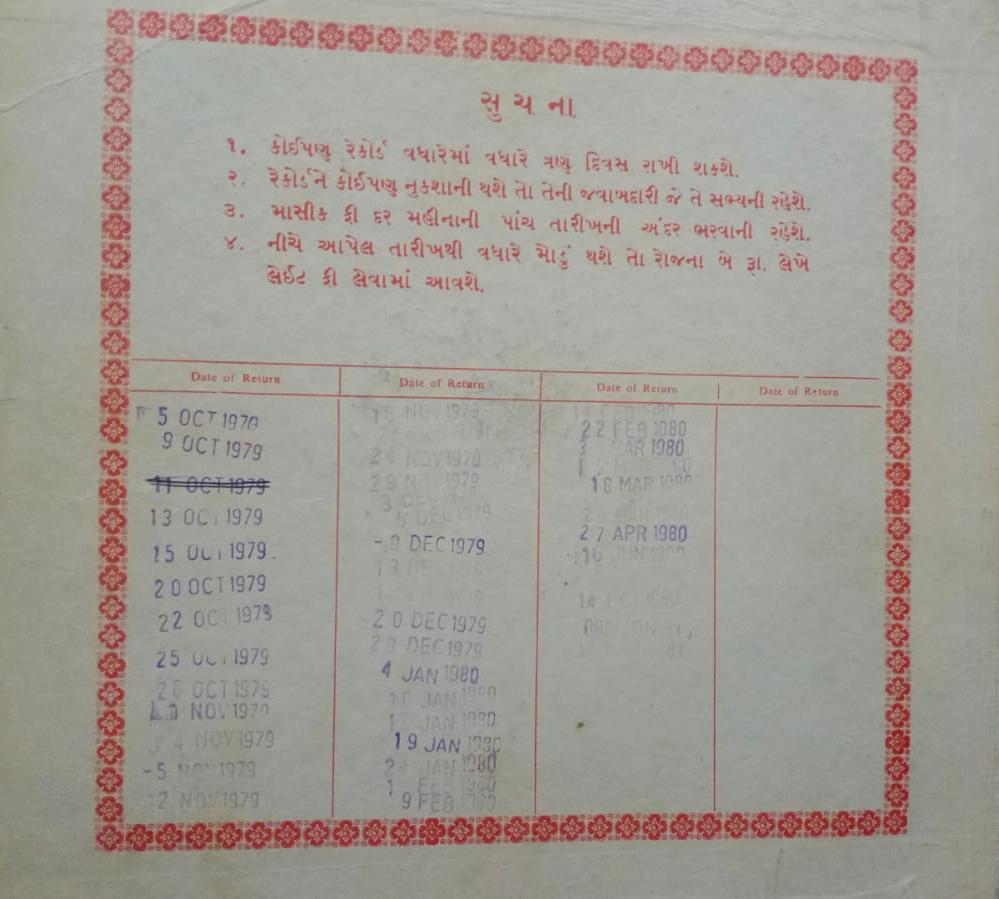 સુચના
૧. કોઈપણ રેકોર્ડ વધારેમાં વધારે ત્રણ દિવસ રાખી શકશે.
૨. રેકોર્ડને કોઈપણ નુકશાની થશે તો તેની જવાબદારી જે તે સભ્યની રહેશે.
૩. માસીક ફી દર મહીનાની પાંચ તારીખની અંદર ભરવાની રહેશે.
૪. નીચે આપેલ તારીખથી વધારે મોડું થશે તો રોજના બે રૂા. લેખે
લેઈટ ફી લેવામાં આવશે.
Date of Return Date of Return Date of Return Date of Return
5 OCT 1979
9 OCT 1979
11 OCT 1979
13 OCT 1979
15 OCT 1979.
20 OCT 1979
22 OCT 1979
25 OCT 1979
26 OCT 1979
NOV 1979
4 NOV 1979
-5 NOV 1979
12 NOV 1979
18 NOV 1979
24 NOV 1979
29 NOV 1979
3 DEC
6 DEC 1979
DEC 1979
20 DEC 1979
29 DEC 1979
4 JAN 1980
10 JAN 1980
JAN 1980
19 JAN 1980
JAN 1980
1 FEB 1980
9 FEB 1980
11 FEB 1980
22 FEB 1980
MAR 1980
18 MAR 1980
27 APR 1980
16 JUN 1980
14 OCT 1980